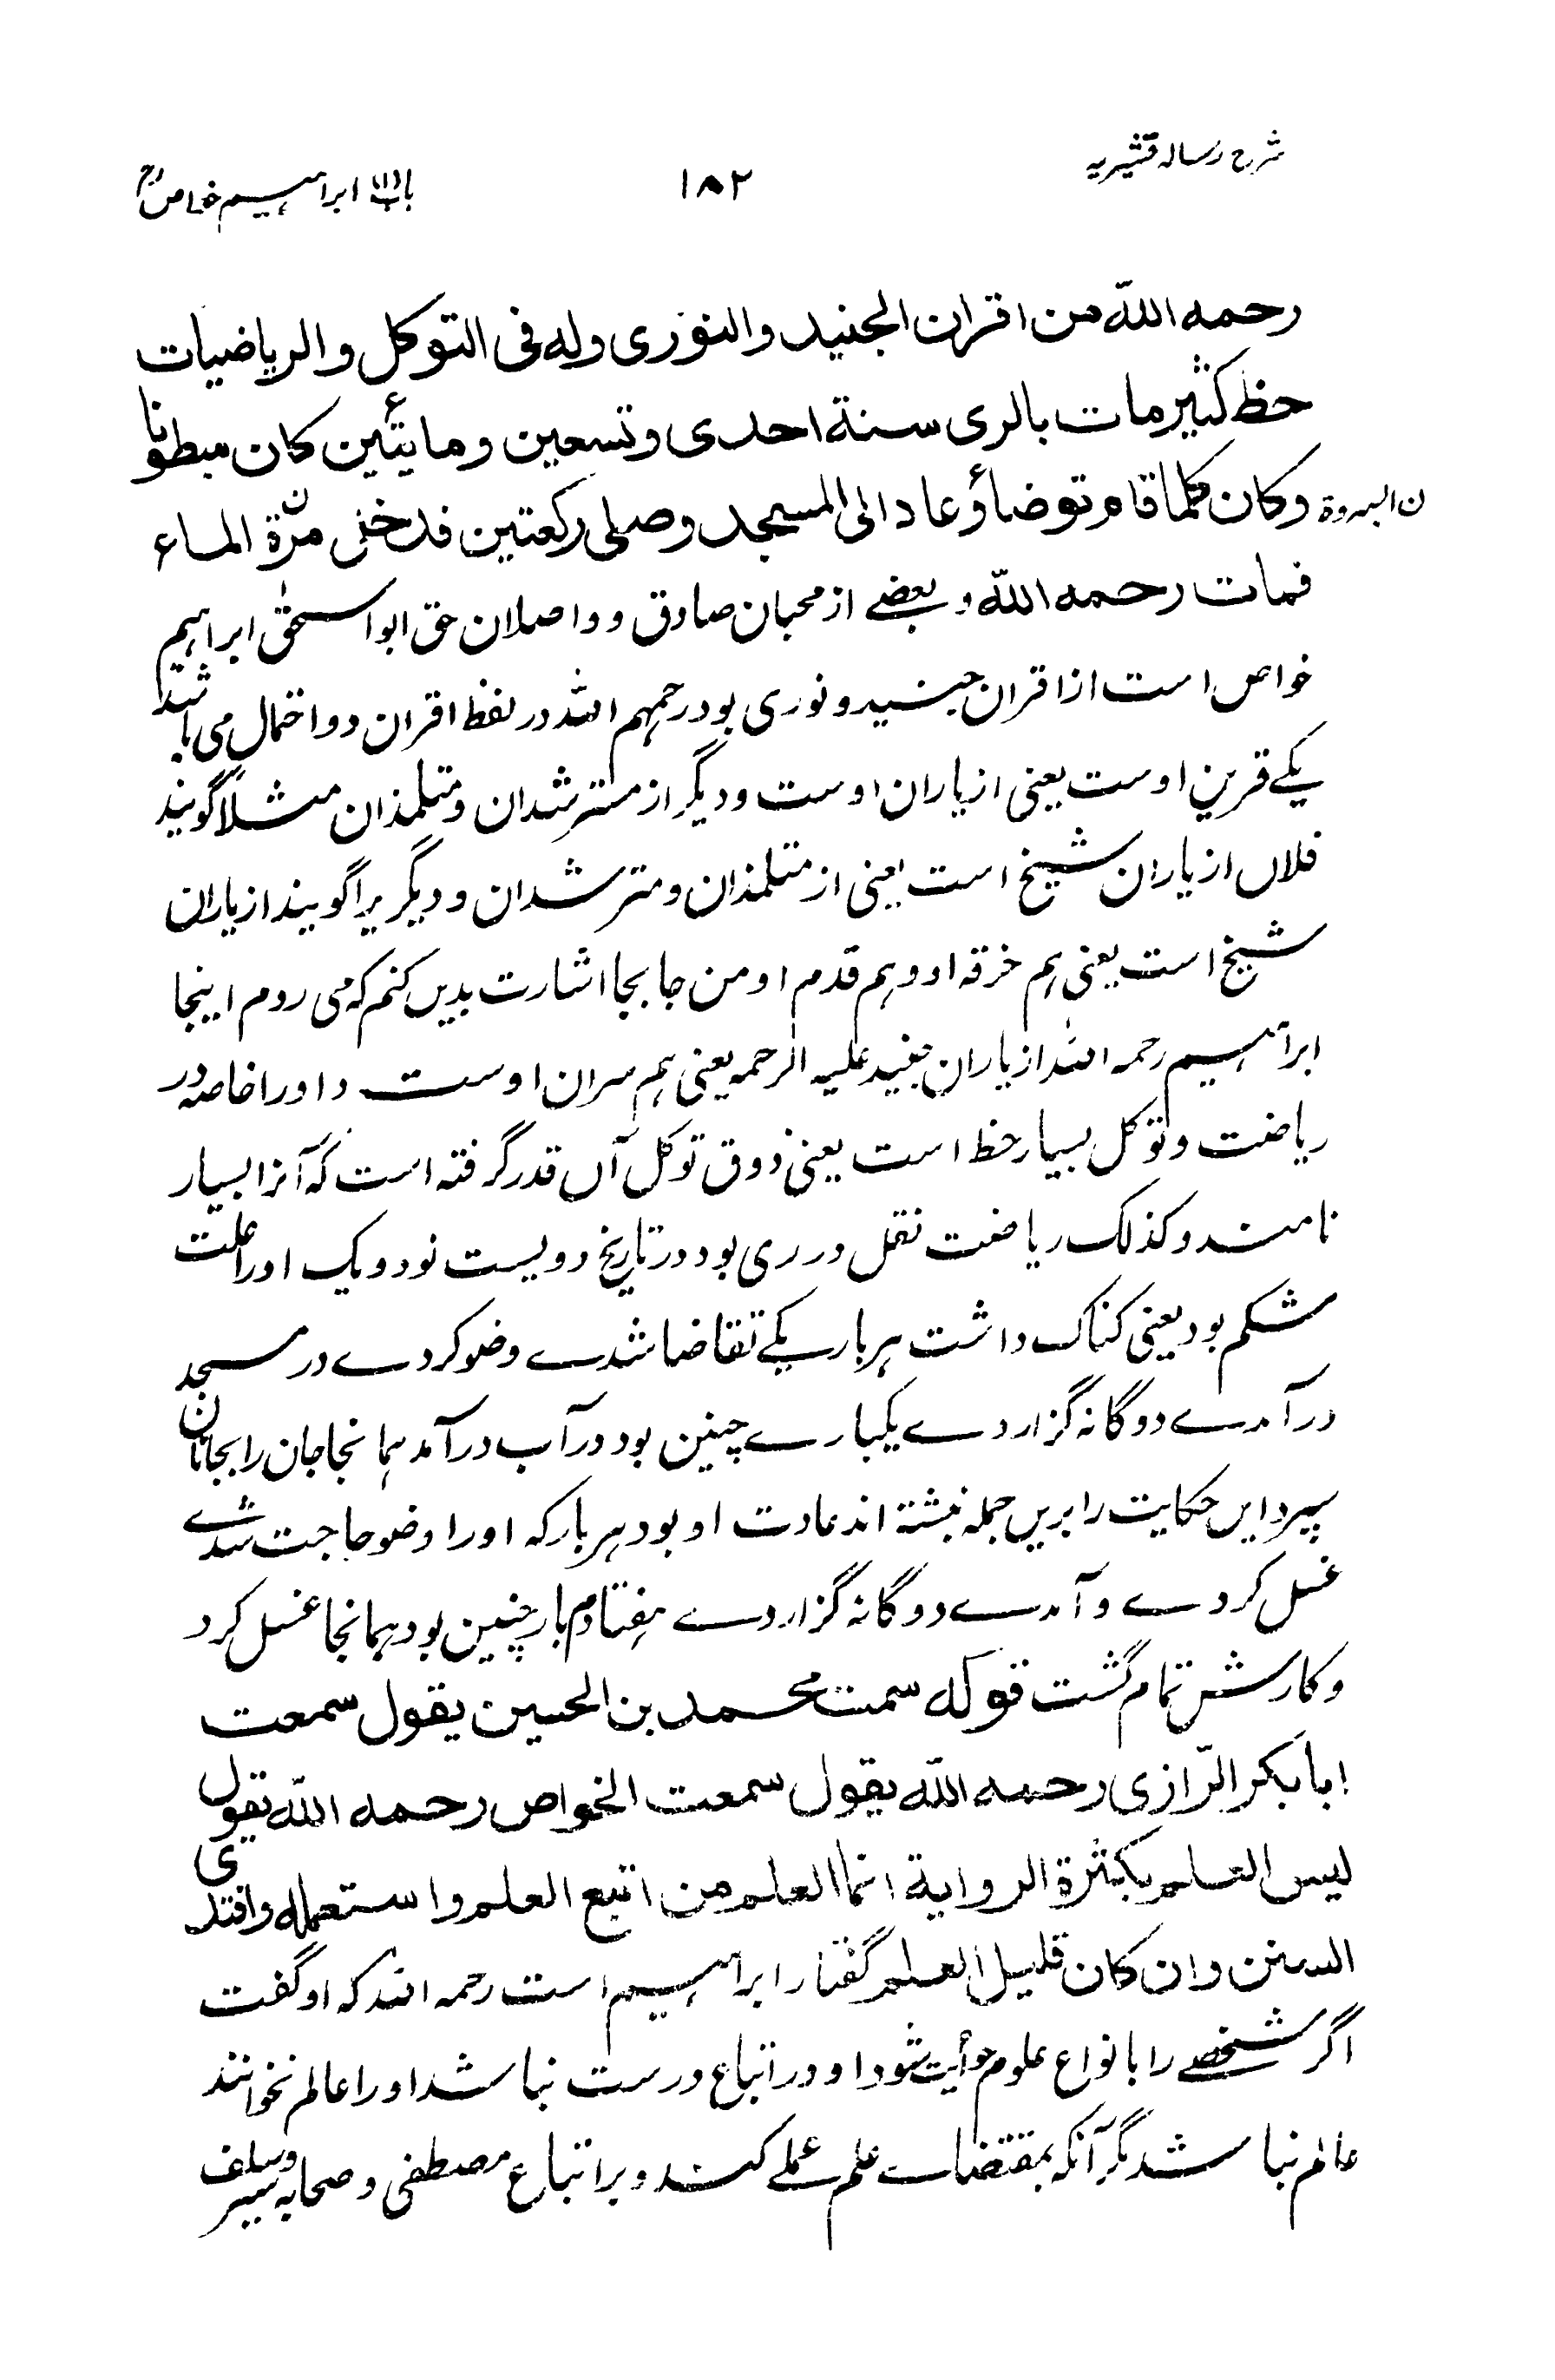 شرح رسالہ قشیریہ
۱۸۲
باب ابراہیم خواص رح
رحمه اللّٰه من اقران الجنيد والنوری وله فی التوكل والریاضيات
حظ كثير مات بالری سنة احدی وتسعین ومایتئین كان مبطونا
ن البدوۃ
وكان كلما قام توضأ وعاد الی المسجد وصلی ركعتین فدخل مرة الماء
فمات رحمه اللّٰه و بعضے از محبان صادق و واصلان حق ابو اسحٰق ابراہیم
خواص است از اقران جنید و نوری بود رحمہم اللہ در لفظ اقران دو احتمال می باشد
یکے قرین اوست یعنی از یاران اوست و دیگر از مسترشدان و متلمذان مثلاً گویند
فلاں از یاران شیخ است یعنی از متلمذان و مترشدان و دیگر یرا گویند از یاران
شیخ است یعنی ہم خرقہ او و ہم قدم او من جا بجا اشارت بدیں کنم کہ می روم اینجا
ابراہیم رحمہ اللہ از یاران جنید علیہ الرحمہ یعنی ہم سران اوست و اورا خاصہ در
ریاضت و توکل بسیار حظ است یعنی ذوق توکل آں قدر گرفتہ است کہ آنرا بسیار
نامند و کذلک ریاضت نقل در ری بود در تاریخ دویست نود و یک اورا علت
شکم بود یعنی کناک داشت ہر بار یکے تقاضا شدے وضو کردے در مسجد
در آمدے دوگانہ گزاردے یکبارے چنین بود در آب در آمد ہمانجا جان را بجانان
سپرد ایں حکایت را بریں جملہ نبشتہ اند عادت او بود ہر بار کہ اورا وضو حاجت شدے
غسل کردے و آمدے دوگانہ گزاردے ہفتادم بار چنین بود ہمانجا غسل کرد
و کارش تمام گشت قوله سمت محمد بن الحسین یقول سمعت
ابا بكر الرّازی رحمه اللّٰه یقول سمعت الخواص رحمه اللّٰه یقول
لیس العلم بكثرة الروایة انما العلم من اتبع العلم واستعمله واقتدی
السنن وان كان قلیل العلم گفتار ابراہیم است رحمہ اللہ کہ او گفت
اگر شخصے را بانواع علوم شود او در اتباع درست نباشد اورا عالم نخوانند
عالم نباشد مگر آنکہ بمقتضاے علم عملے کند و بر اتباع مصطفی و صحابہ و سلف سیر